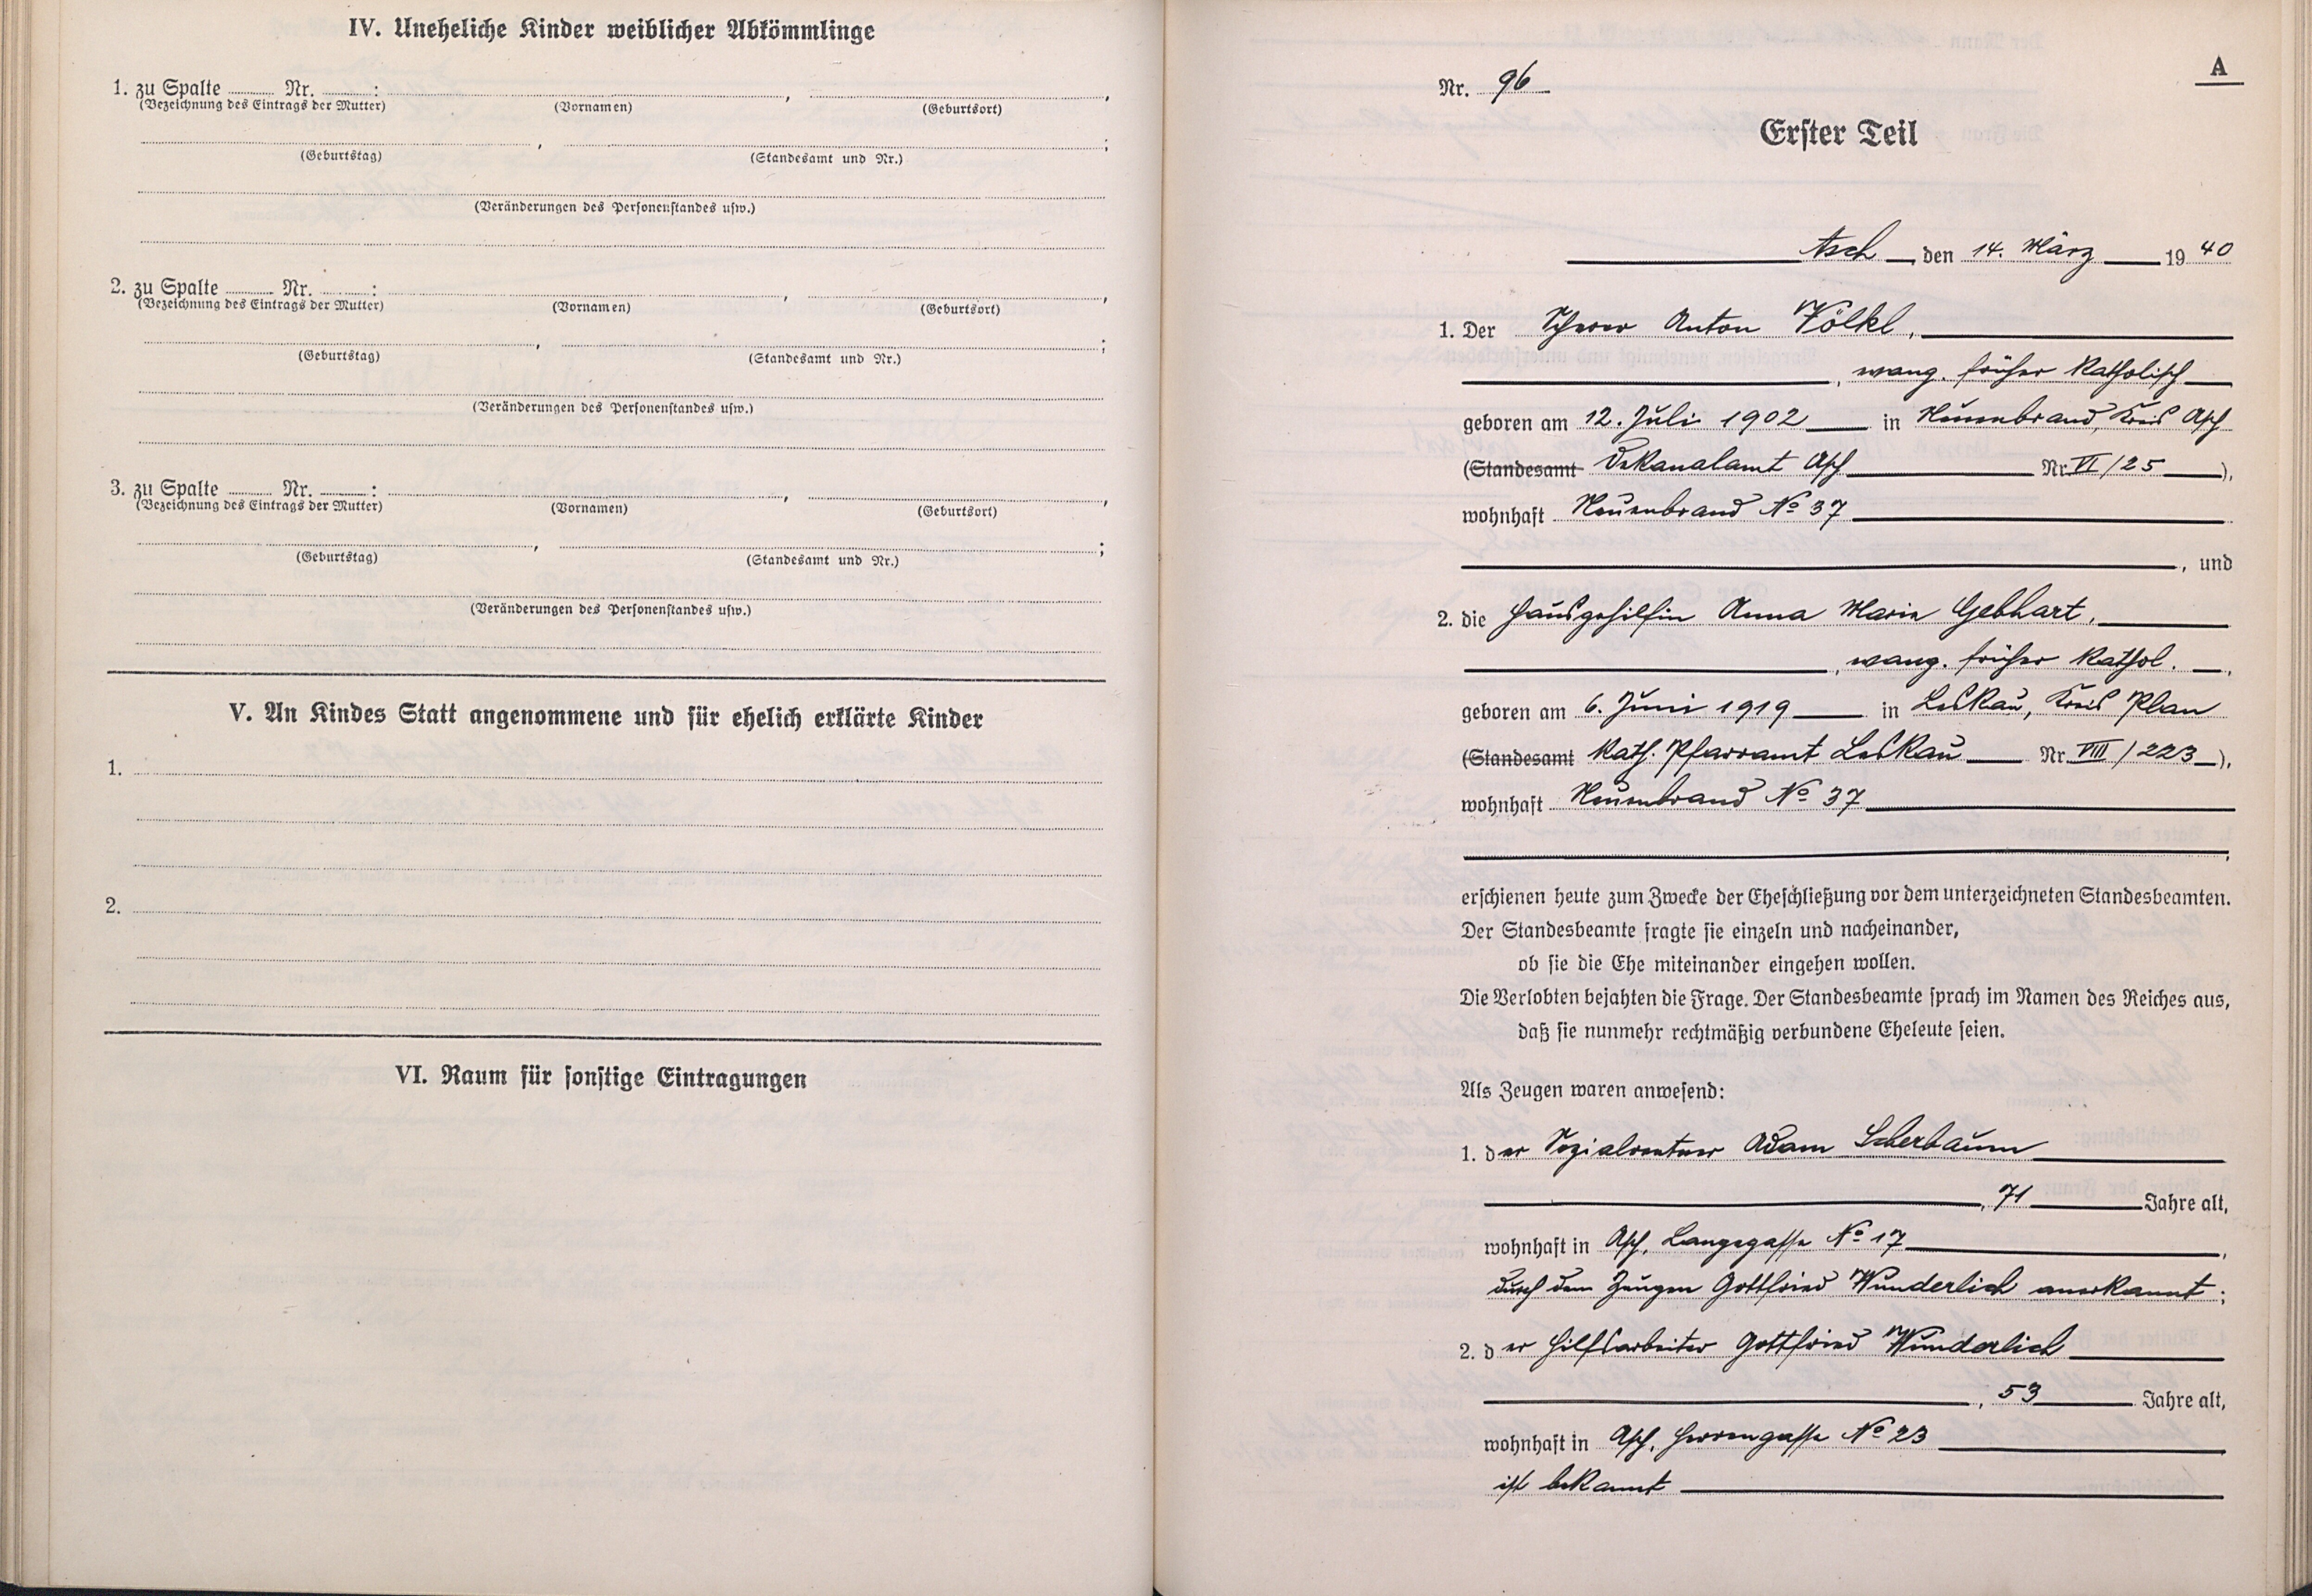 IV. Uneheliche Kinder weiblicher Abkömmlinge
1. zu Spalte ........ Nr. ........:
(Bezeichnung des Eintrags der Mutter) (Vornamen) (Geburtsort)
(Geburtstag) (Standesamt und Nr.)
(Veränderungen des Personenstandes usw.)
2. zu Spalte ........ Nr. ........:
(Bezeichnung des Eintrags der Mutter) (Vornamen) (Geburtsort)
(Geburtstag) (Standesamt und Nr.)
(Veränderungen des Personenstandes usw.)
3. zu Spalte ........ Nr. ........:
(Bezeichnung des Eintrags der Mutter) (Vornamen) (Geburtsort)
(Geburtstag) (Standesamt und Nr.)
(Veränderungen des Personenstandes usw.)
V. An Kindes Statt angenommene und für ehelich erklärte Kinder
1.
2.
VI. Raum für sonstige Eintragungen
A
Nr. 96
Erster Teil
Asch, den 14. März 1940
1. Der Scherer Anton Völkl,
, evang. früher katholisch
geboren am 12. Juli 1902 in Neuenbrand, Kreis Asch
(Standesamt Dekanalamt Asch Nr. VI/25),
wohnhaft Neuenbrand No 37
, und
2. die Hausgehilfin Anna Maria Gebhart,
, evang. früher kathol.,
geboren am 6. Juni 1919 in Leskau, Kreis Plan
(Standesamt kath. Pfarramt Leskau Nr. VIII/223),
wohnhaft Neuenbrand No 37
;
erschienen heute zum Zwecke der Eheschließung vor dem unterzeichneten Standesbeamten.
Der Standesbeamte fragte sie einzeln und nacheinander,
ob sie die Ehe miteinander eingehen wollen.
Die Verlobten bejahten die Frage. Der Standesbeamte sprach im Namen des Reiches aus,
daß sie nunmehr rechtmäßig verbundene Eheleute seien.
Als Zeugen waren anwesend:
1. der Sozialrentner Adam Scherbaum
, 71 Jahre alt,
wohnhaft in Asch, Langegasse No 17,
durch den Zeugen Gottfried Wunderlich anerkannt;
2. der Hilfsarbeiter Gottfried Wunderlich
, 53 Jahre alt,
wohnhaft in Asch, Herrengasse No 23
ist bekannt